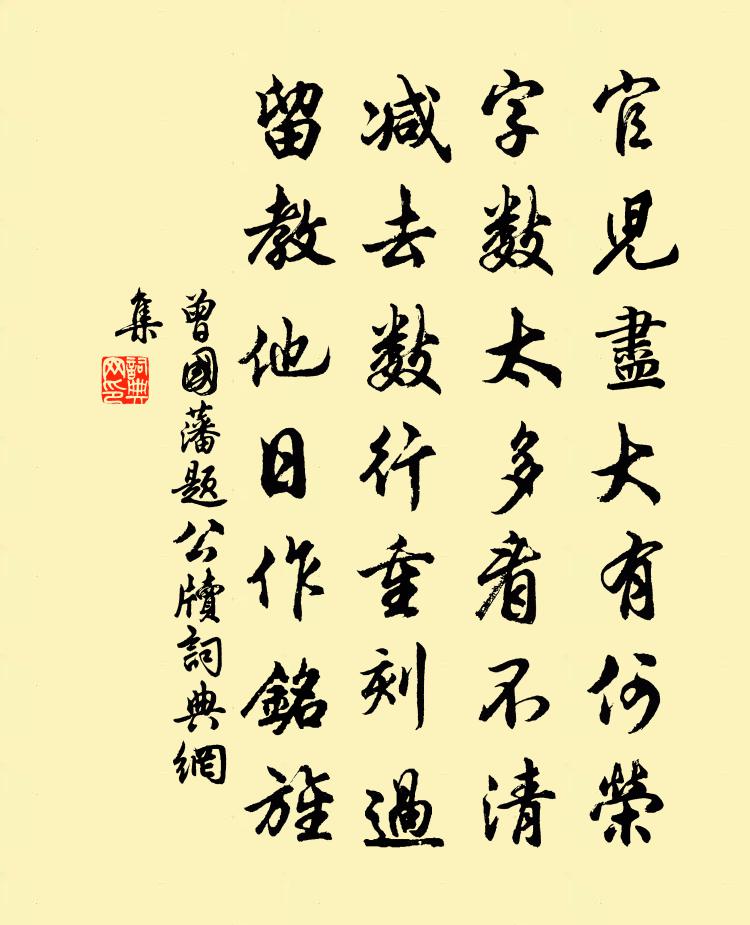 官児盡大有何榮
字数太多看不清
减去数行重刻過
留教他日作銘旌
曾國藩题公牘詞典網
集
詞典
网印